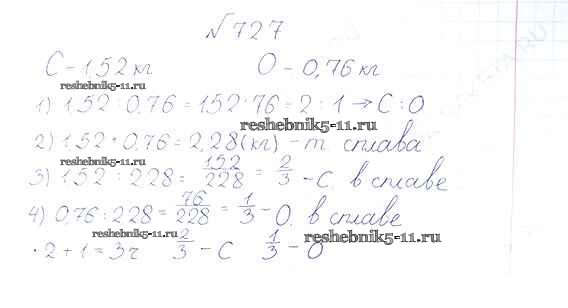 №727
C – 1,52 кг   O – 0,76 кг
reshebnik5-11.ru
1) 1,52 : 0,76 = 152 : 76 = 2 : 1 → C : O
reshebnik5-11.ru
2) 1,52 + 0,76 = 2,28 (кг) – m сплава
reshebnik5-11.ru
3) 1,52 : 228 = 152/228 = 2/3 – C. в сплаве
4) 0,76 : 228 = 76/228 = 1/3 – O. в сплаве
reshebnik5-11.ru
reshebnik5-11.ru
· 2 + 1 = 3ч   2/3 – C   1/3 – O